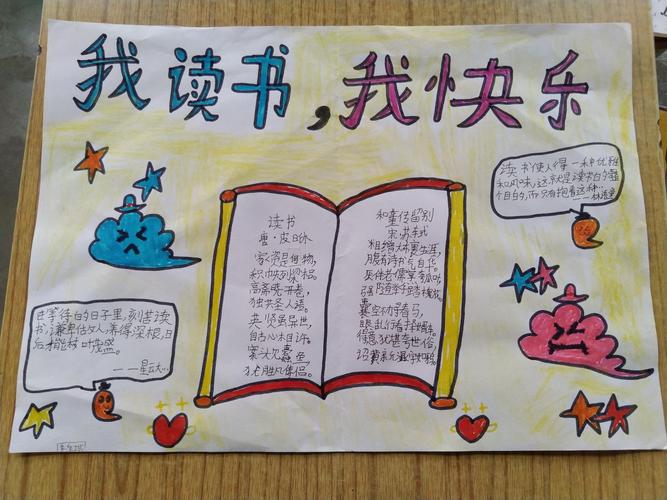 我读书,我快乐
读书
唐·皮日休
家资是何物,
积帙列梁梠。
高斋晓开卷,
独共圣人语。
英贤虽异世,
自古心相许。
案头见蠹鱼,
犹胜凡俦侣。
和董传留别
宋苏轼
粗缯大布裹生涯,
腹有诗书气自华。
厌伴老儒烹瓠叶,
强随举子踏槐花。
囊空不办寻春马,
眼乱行看择婿车。
得意犹堪夸世俗,
诏黄新湿字如鸦。
读书使人得一种优雅
和风味,这就是读书的整
个目的,而只有抱着这种
——林语堂
在等待的日子里,刻苦读
书,谦卑做人,养得深根,日
后才能枝叶茂盛。
——星云大